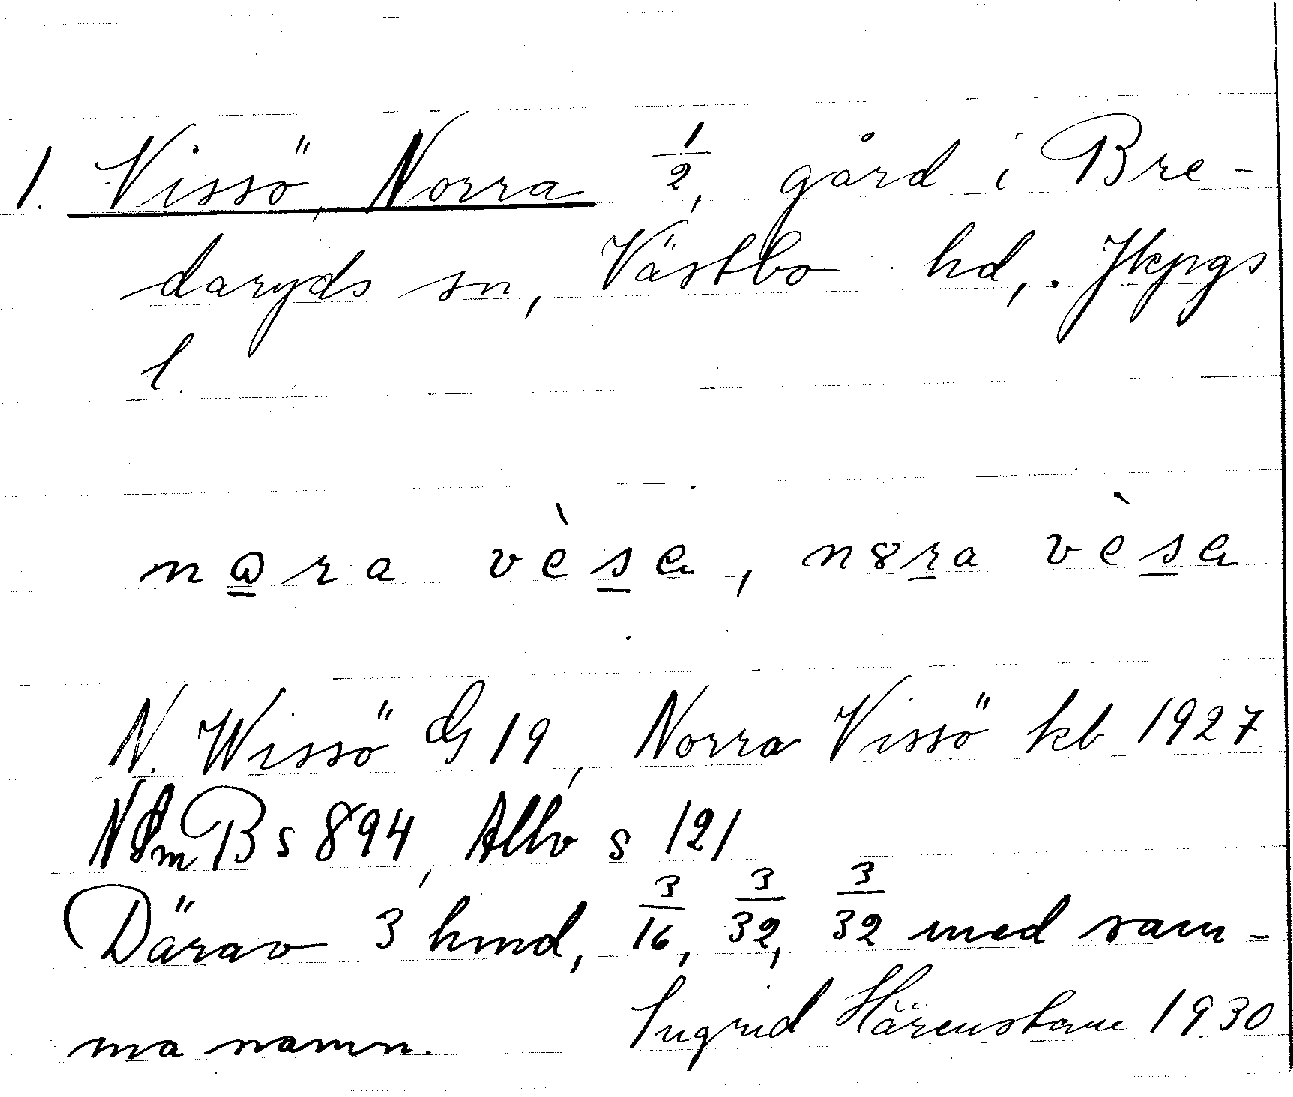 1. Vissö, Norra 1/2, gård i Bre-
daryds sn, Västbo hd, Jkpgs
l.
nara vèsa, n8ra vèsa
N. Wissö G 19, Norra Vissö kb 1927
B s 894, Allv s 121
Därav 3 hmd, 3/16, 3/32, 3/32 med sam-
ma namn. Ingrid Härenstam 1930